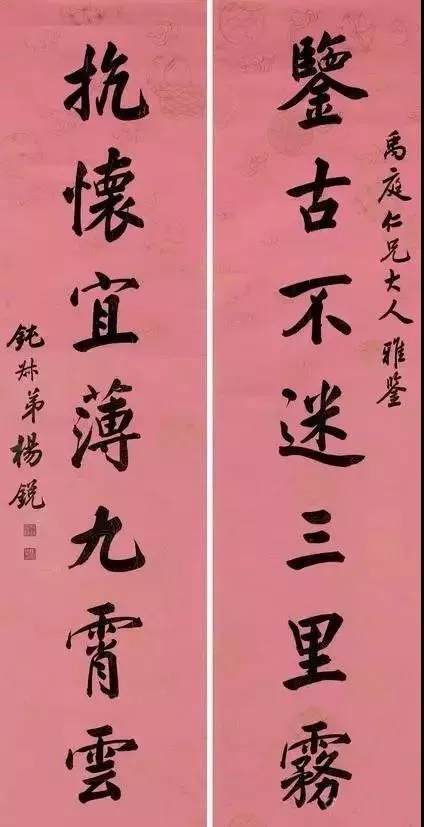 禹庭仁兄大人雅鑒
鑒古不迷三里霧
抗懷宜薄九霄雲
鈍叔弟楊銳